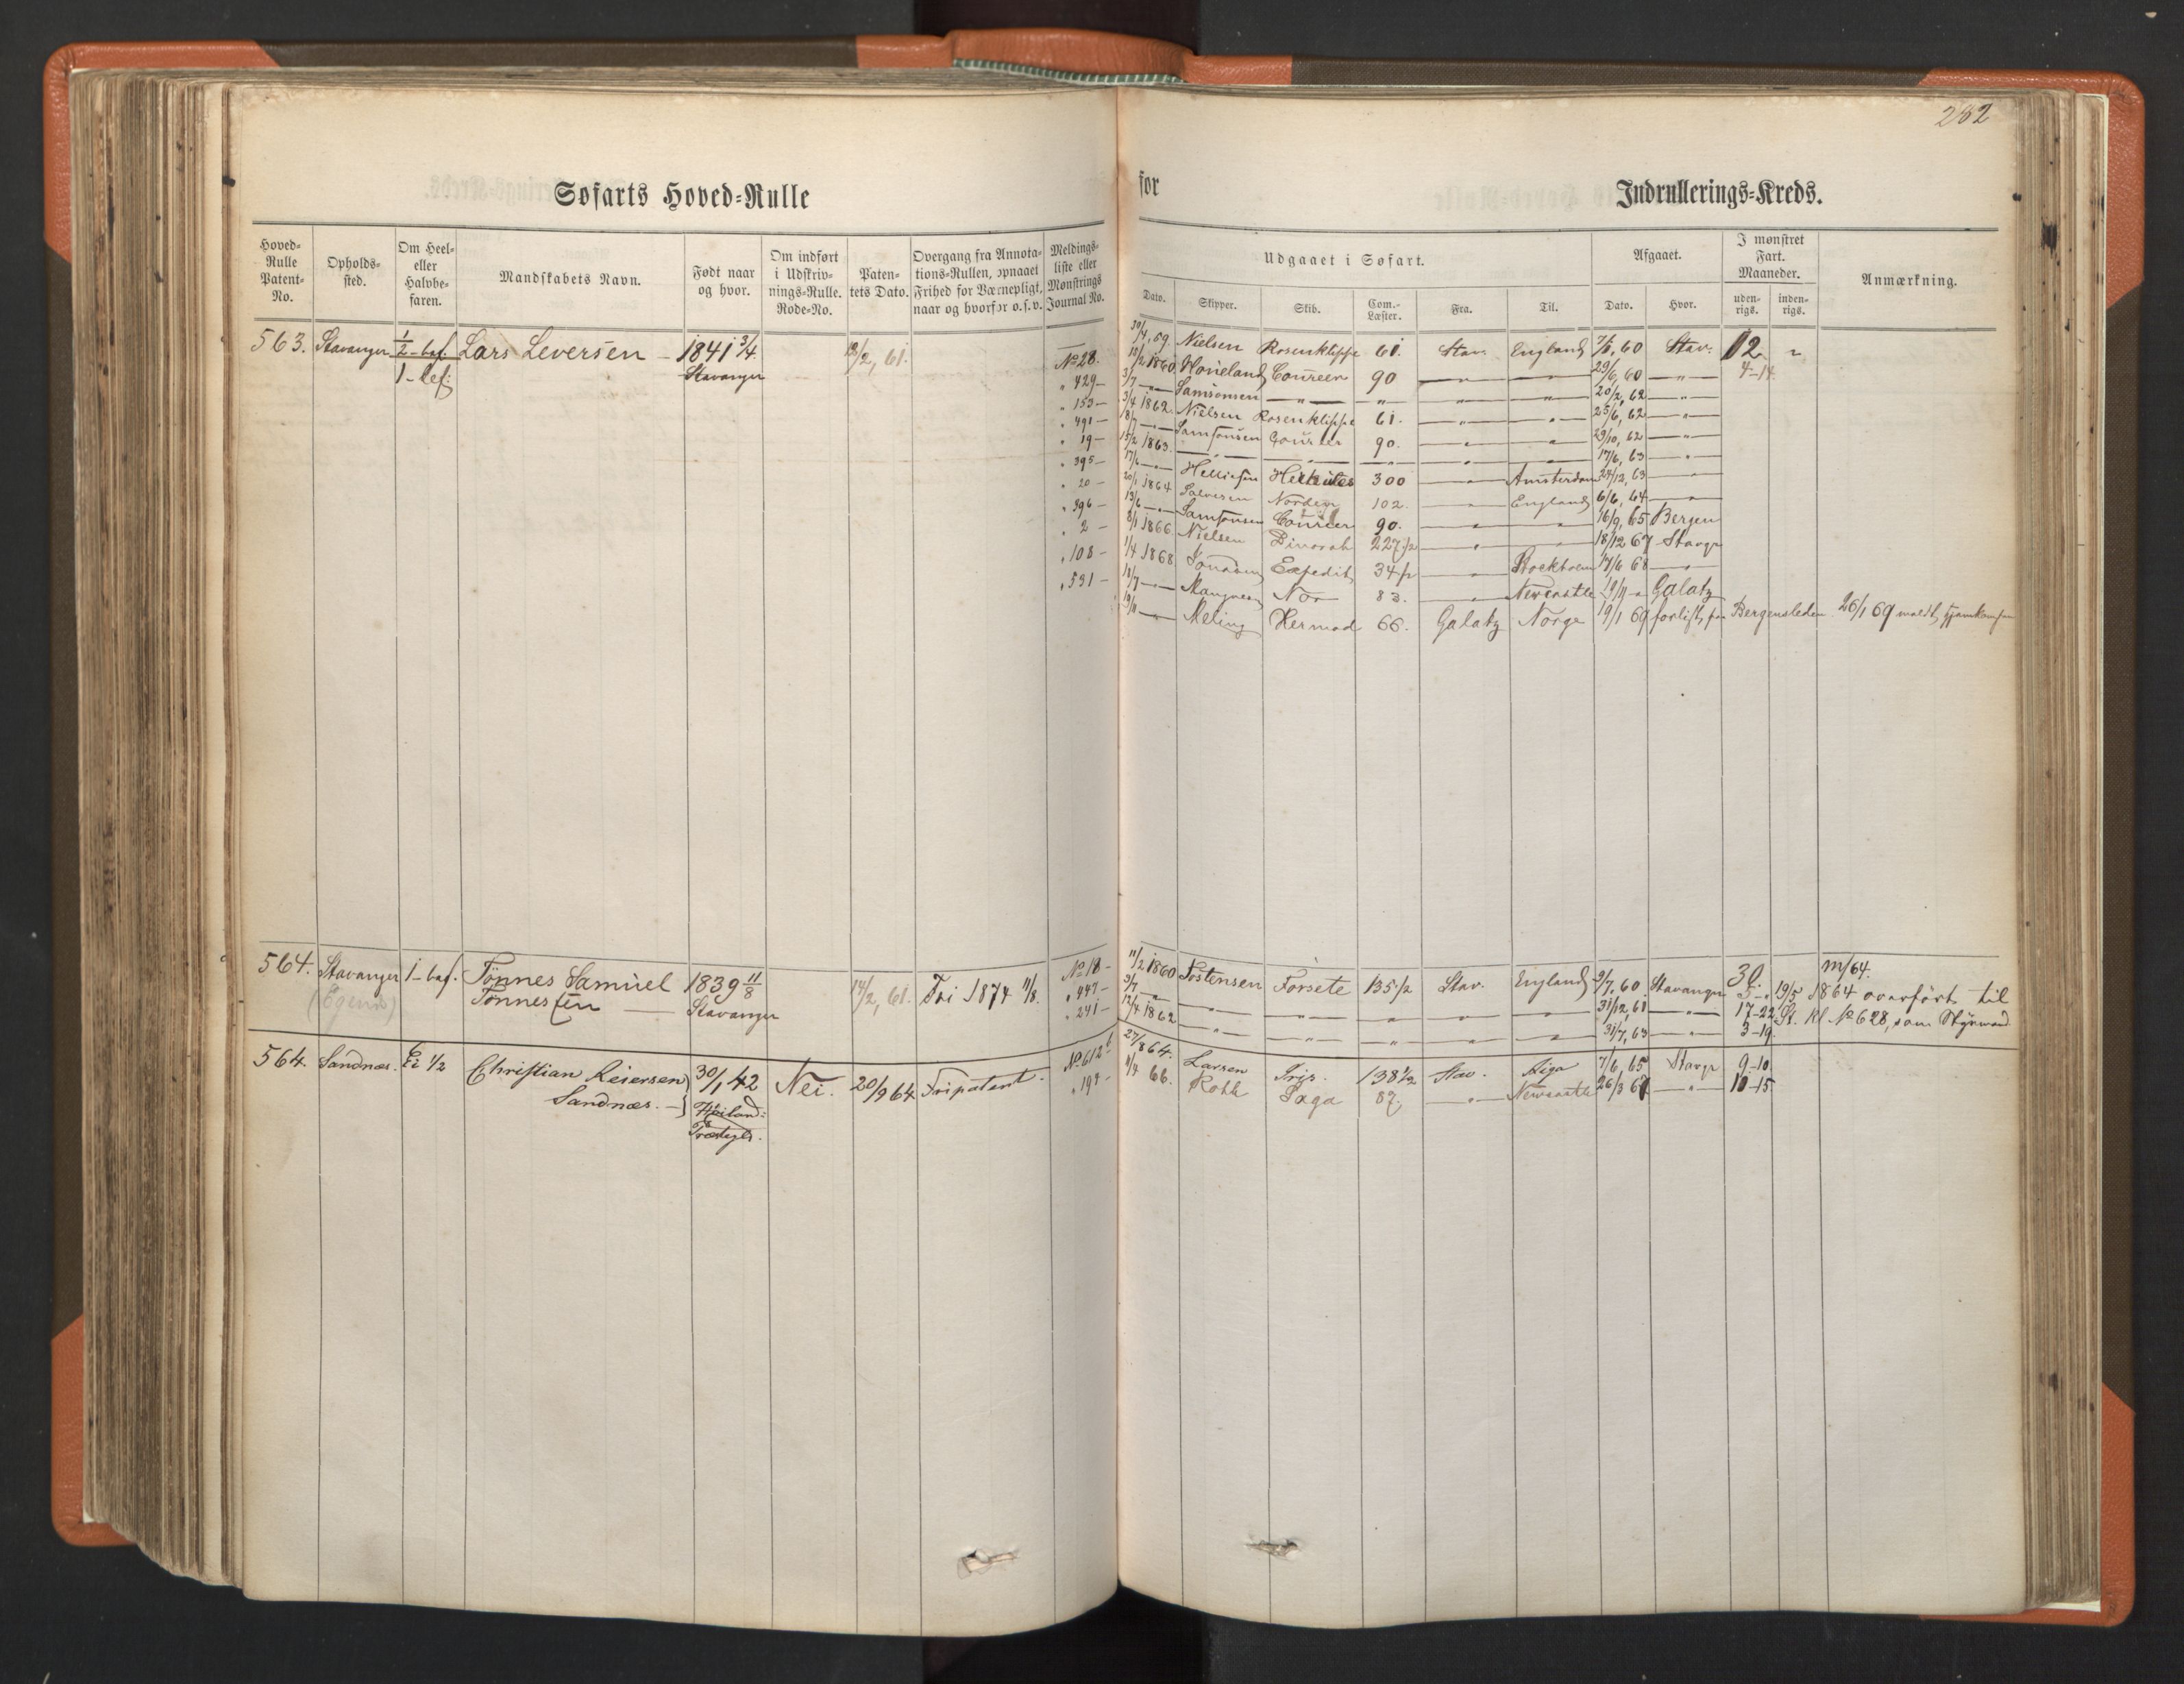 282
Søfarts Hoved-Rulle for Indrullerings-Kreds.
Hoved-Rulle Patent-No.
Opholds-sted.
Om Heel- eller Halvbe-faren.
Mandskabets Navn.
Født naar og hvor.
Om indført i Udskriv-nings-Rulle. Rode-No.
Paten-tets Dato.
Overgang fra Annota-tions-Rullen, opnaaet Frihed for Værnepligt, naar og hvorfor o.s.v.
Meldings-liste eller Mønstrings Journal No.
Udgaaet i Søfart.
Dato. Skipper. Skib. Com.-Læster. Fra. Til.
Afgaaet.
Dato. Hvor.
I mønstret Fart. Maaneder.
uden-rigs. inden-rigs.
Anmærkning.
563. Stavanger 1/2-bef. Lars Leversen - 1841 3/4 13/2, 61.
1-bef: Stavanger
No 28 30/4, 59. Nielsen Rosenklippe 61. Stav. England 7/1, 60 Stav: 12 "
" 429 - 13/2 1860 Hovieland Coureer 90 — — 29/6, 60 — " — 4-14
" 153 - 3/7 — " — Samsonsen — " — " " " 20/2, 62 — " —
" 491 - 3/4 1862. Nielsen Rosenklippe 61. " " 25/6, 62 — " —
" 19 - 18/7 — " — Samsonsen Coureer 90. " " 29/10, 62 — " —
" 395 - 15/2 1863 — " — — " — — " — " " 17/6, 63 — " —
" 20 - 17/6 — " — Helliesen Herkules 300 " Amsterdam 24/12, 63 — " —
" 396 - 20/1 1864 Salvesen Norden 102. " England 6/6, 64 — " —
" 2 - 13/6 — " — Samsonsen Coureer 90. " " 16/9, 65 Bergen
" 108 - 8/1 1866 Nielsen Dinorah 227 1/2 " " 18/12 67 Stavgr
" 531 - 1/4 1868 Jonassen Expedit 34 1/2 " Stockholm 17/6 68 — " —
18/7 — " — Mangnes Nor 83. " Newcastle 19/11 " Galatz
19/11 — " — Meling Hermod 66. Galatz Norge 19/1 69 forlist paa Bergensleden 26/1 69 meldt hjemkommen
564. Stavanger 1-bef. Tønnes Samuel 1839 11/8 14/2, 61. Fri 1874 11/8. No 18 - 11/2 1860 Tostensen Forsete 135 1/2 Stav. England 2/7, 60 Stavanger 30. m/64.
(Egersd) Tønnessen — Stavanger " 447 - 3/7 — " — " " " " 31/12, 61 — " — 5 - " 19/5 1864 overført til
" 241 - 12/4 1862 " " " " " 31/7, 63 — " — 17-22 St. Rl No 628, som Styrmand
3-19
564. b Sandnæs. Ei 1/2 Christian Reiersen 30/1 42 Nei. 20/9 64 Fripatent. No 612 b 27/8 64. Larsen Trip. 138 1/2 Stav. Riga 7/6, 65 Stavgr 9-10
Sandnæs. - Høiland: " 194 - 4/4 66. Roth Saga 87. — " — Newcastle 26/3 67 — " — 10-15